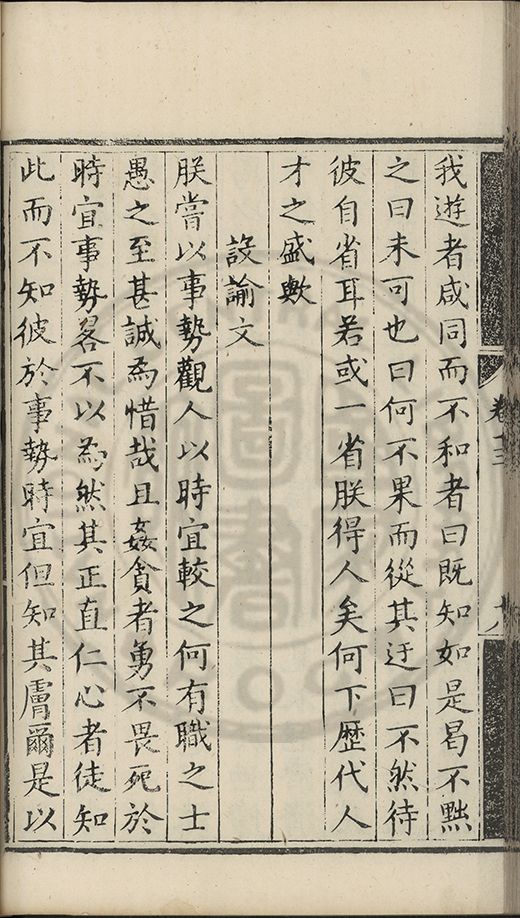 我遊者咸同而不和者曰既知如是曷不黜
之曰未可也曰何不果而從其迂曰不然待
彼自省耳若或一省朕得人矣何下歷代人
才之盛歟
設諭文
朕嘗以事勢觀人以時宜較之何有職之士
愚之至甚誠為惜哉且姦貪者勇不畏死於
時宜事勢畧不以為然其正直仁心者徒知
此而不知彼於事勢時宜但知其膚爾是以
卷十三